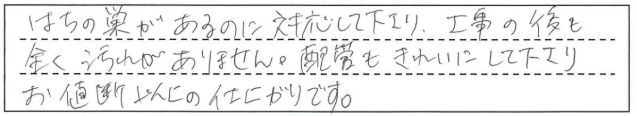 はちの巣があるのに対応して下さり、工事の後も
全く汚れがありません。配管もきれいにして下さり
お値断以上の仕上がりです。